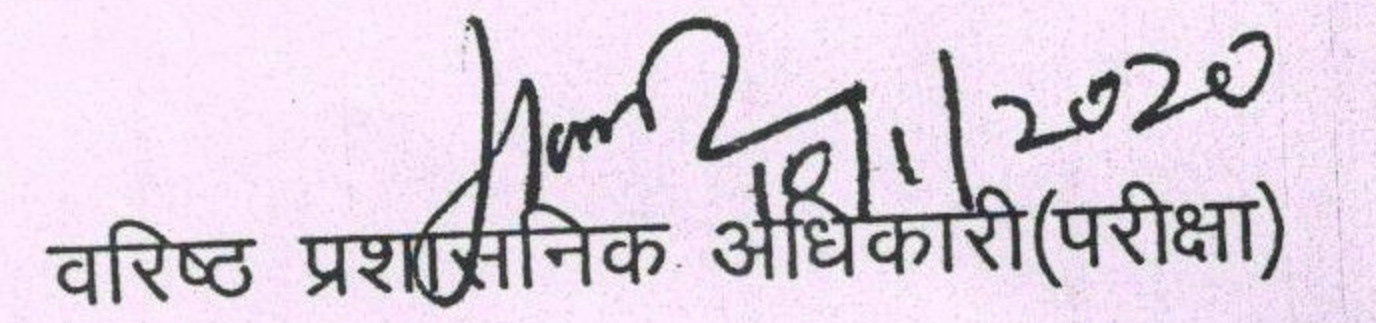 10/1/2020
वरिष्ठ प्रशासनिक अधिकारी(परीक्षा)